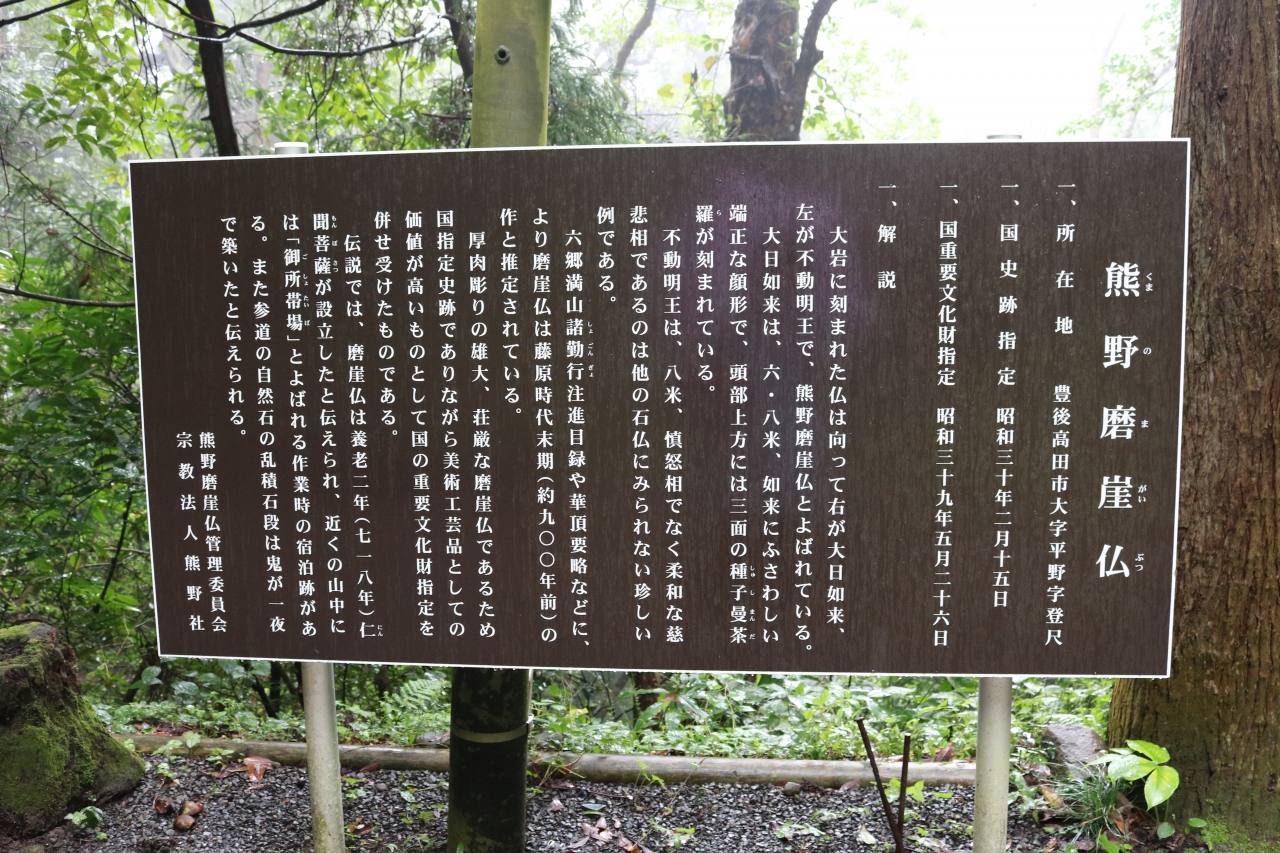 熊野磨崖仏
くまのまがいぶつ
一、所在地 豊後高田市大字平野字登尺
一、国史跡指定 昭和三十年二月十五日
一、国重要文化財指定 昭和三十九年五月二十六日
一、解説
大岩に刻まれた仏は向って右が大日如来、
左が不動明王で、熊野磨崖仏とよばれている。
大日如来は、六・八米、如来にふさわしい
端正な顔形で、頭部上方には三面の種子曼荼
しゅしまんだ
羅が刻まれている。
ら
不動明王は、八米、慎怒相でなく柔和な慈
悲相であるのは他の石仏にみられない珍しい
例である。
六郷満山諸勤行注進目録や華頂要略などに、
しょごんぎょ
より磨崖仏は藤原時代末期(約九〇〇年前)の
作と推定されている。
厚肉彫りの雄大、荘厳な磨崖仏であるため
国指定史跡でありながら美術工芸品としての
価値が高いものとして国の重要文化財指定を
併せ受けたものである。
伝説では、磨崖仏は養老二年(七一八年)仁
にん
聞菩薩が設立したと伝えられ、近くの山中に
もんぼさつ
は「御所帯場」とよばれる作業時の宿泊跡があ
ごしょたいば
る。また参道の自然石の乱積石段は鬼が一夜
で築いたと伝えられる。
熊野磨崖仏管理委員会
宗教法人熊野社